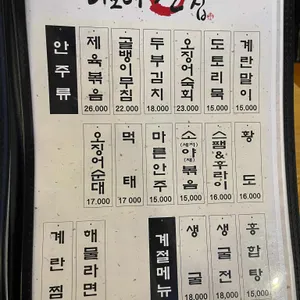 안주류
제육볶음 26,000
골뱅이무침 22,000
두부김치 18,000
오징어숙회 23,000
도토리묵 15,000
계란말이 15,000
오징어순대 17,000
먹태 17,000
마른안주 15,000
소(세지)야(채)볶음 15,000
스팸&후라이 16,000
황도 16,000
계란찜
해물라면
계절메뉴
생굴 18,000
생굴전 18,000
홍합탕 15,000